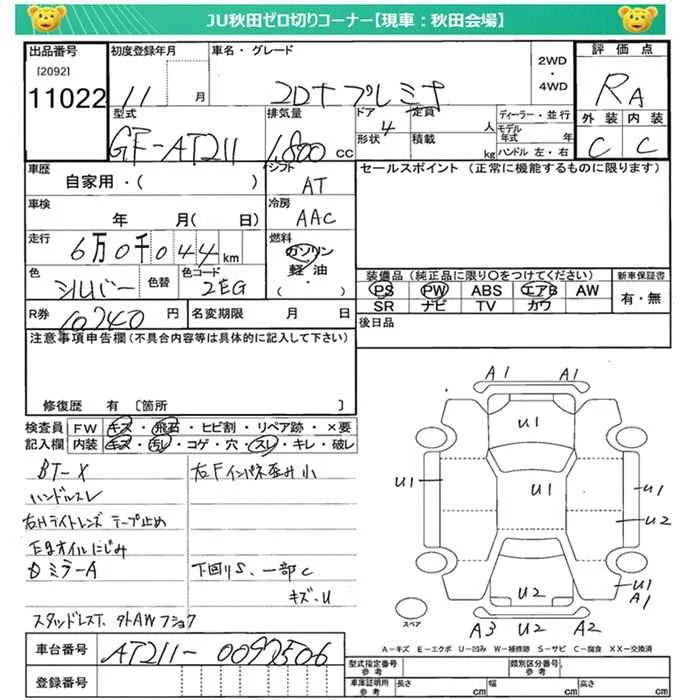 JU秋田ゼロ切りコーナー【現車：秋田会場】
出品番号 初度登録年月 車名・グレード 評価点
[2092]
11022 11 月 2Dナプレミオ 2WD・4WD RA
型式 排気量 ドア 定員 ディーラー・並行 外装 内装
GF-AT211 1,800 cc 4 人 モデル年式 年 C C
形状 積載 kg ハンドル 左・右
車歴 シフト セールスポイント（正常に機能するものに限ります）
自家用・（ ） AT
車検 冷房
年 月（日） AAC
走行 燃料
6万0千044km ガソリン
軽油
・（ ）
色 色替 色コード
シルバー 2EG
装備品（純正品に限り○をつけてください） 新車保証書
PS PW ABS エアB AW 有・無
SR ナビ TV カワ
R券 10740 円 名変期限 月 日 後日品
注意事項申告欄（不具合内容等は具体的に記入して下さい）
修復歴 有 ［箇所 ］
検査員 FW キズ・飛石・ヒビ割・リペア跡・×要
記入欄 内装 キズ・汚レ・コゲ・穴・スレ・キレ・破レ
BT-X 右Fインパネ歪み小
ハンドルスレ
右Hライトレンズ テープ止め
Egオイルにじみ
ミラーA 下回りS、一部C
キズ・U
スタッドレスT、タトAWフショク
A1 A1
U1
U1 U1 U1
U2
U1
U2 A1
スペア A3 U2 A2
A－キズ E－エクボ U－凹み W－補修跡 S－サビ C－腐食 XX－交換済
車台番号 AT211-0092506
登録番号
型式指定番号 参考 類別区分番号 参考
車庫証明用 参考 長さ cm 幅 cm 高さ cm